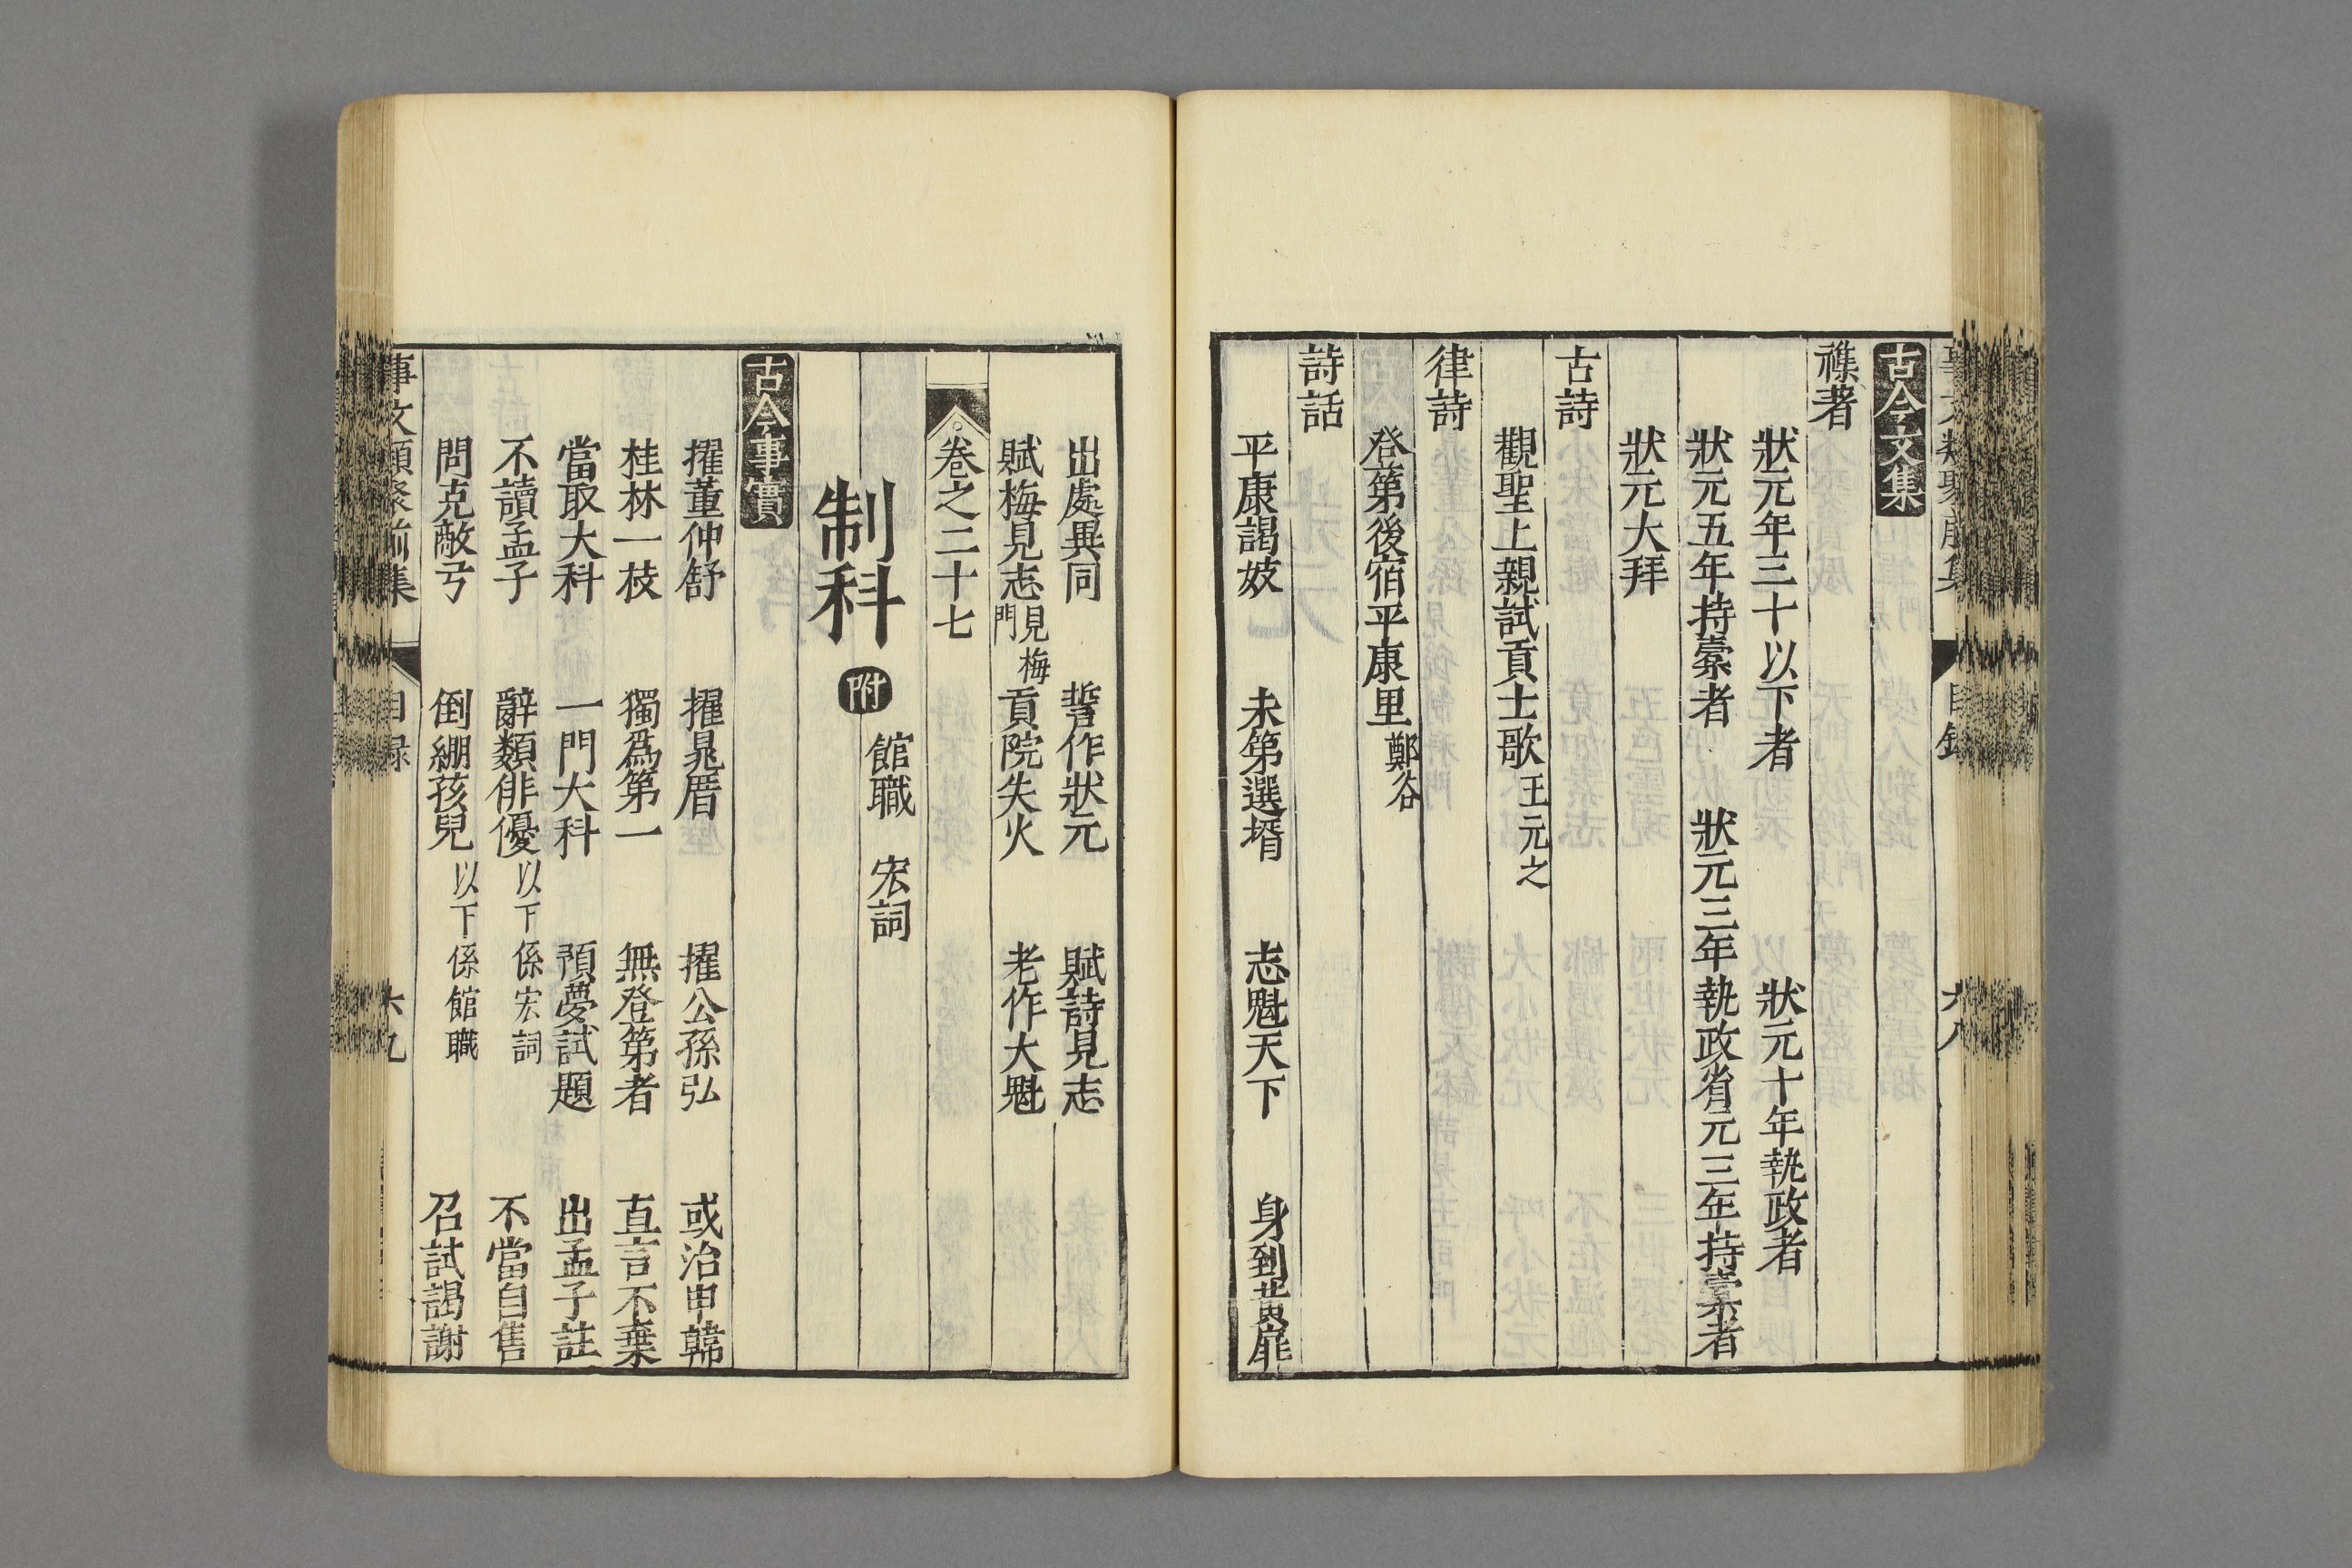 古今文集
襍著
狀元年三十以下者 狀元十年執政者
狀元五年持橐者 狀元三年執政省元三年持橐者
狀元大拜
古詩
觀聖上親試貢士歌 王元之
律詩
登第後宿平康里 鄭谷
詩話
平康謁妓 未第選壻 志魁天下 身到黃扉
出處異同 誓作狀元 賦詩見志
賦梅見志 見梅門 貢院失火 老作大魁
卷之二十七
館職 宏詞
制科 附
古今事實
擢董仲舒 擢晁厝 擢公孫弘 或治申韓
桂林一枝 獨爲第一 無登第者 直言不棄
當取大科 一門大科 預夢試題 出孟子註
不讀孟子 辭類俳優 以下係宏詞 不當自售
問克敵弓 倒綳孩兒 以下係館職 召試謁謝
事文類聚前集 目録 六九